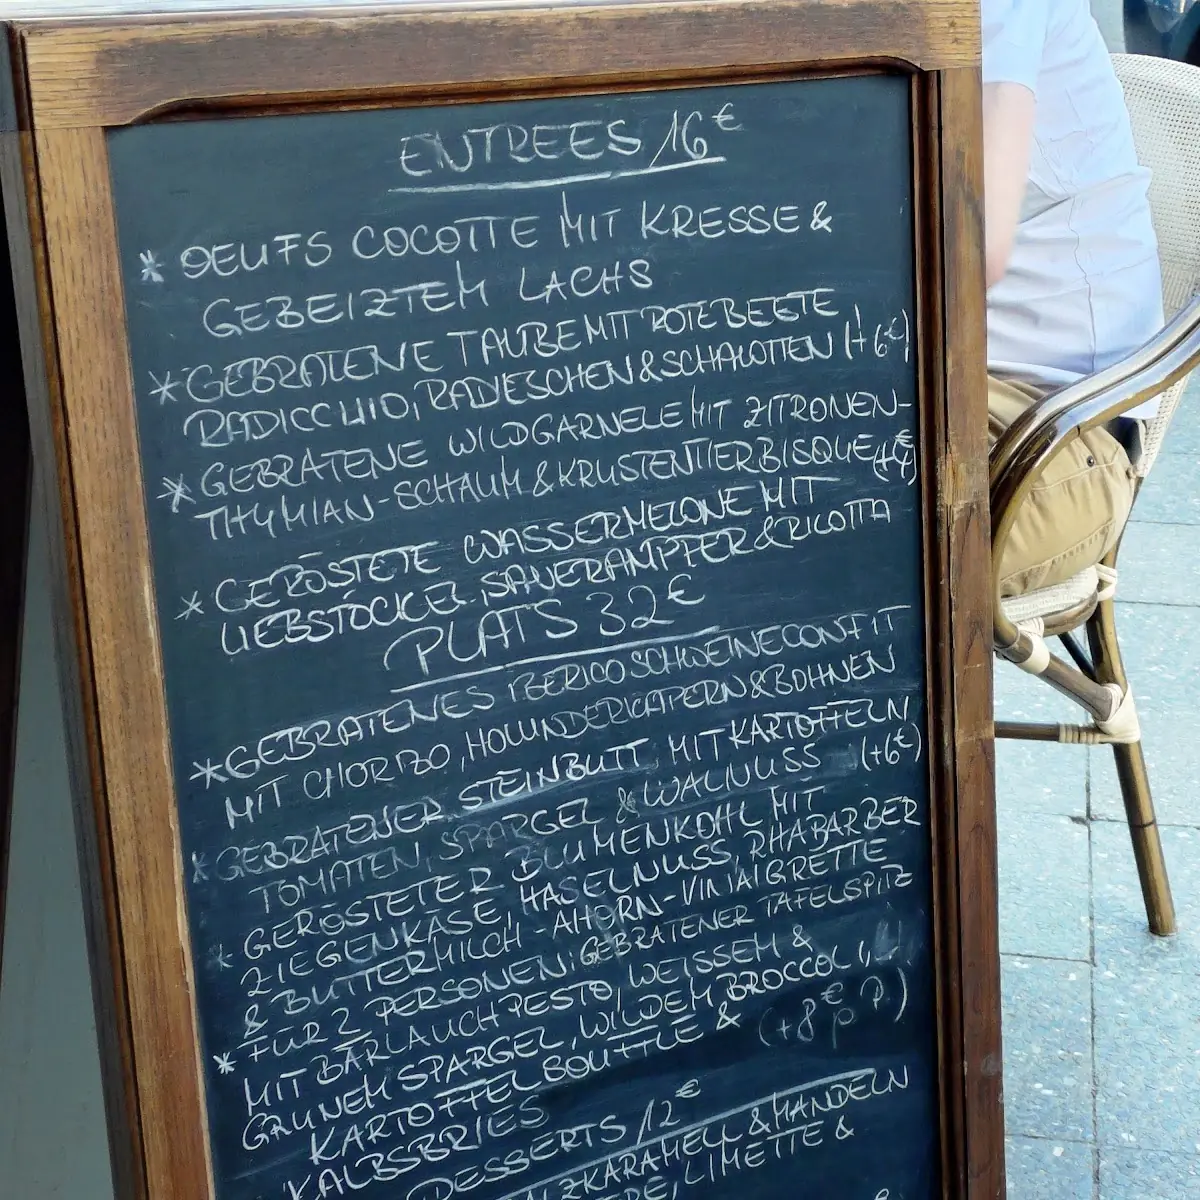 ENTREES 16€
* OEUFS COCOTTE MIT KRESSE &
GEBEIZTEM LACHS
* GEBRATENE TAUBE MIT ROTE BEETE
RADICCHIO, RADIESCHEN & SCHALOTTEN (+6€)
* GEBRATENE WILDGARNELE MIT ZITRONEN-
THYMIAN-SCHAUM & KRUSTENTIERBISQUE (+4€)
* GERÖSTETE WASSERMELONE MIT
LIEBSTÖCKEL, SAUERAMPFER & RICOTTA
PLATS 32€
* GEBRATENES IBERICO SCHWEINECONFIT
MIT CHORIZO, HOLUNDERKAPERN & BOHNEN
* GEBRATENER STEINBUTT MIT KARTOFFELN,
TOMATEN, SPARGEL & WALNUSS (+6€)
* GERÖSTETER BLUMENKOHL MIT
ZIEGENKÄSE, HASELNUSS, RHABARBER
& BUTTERMILCH-AHORN-VINIAIGRETTE
* FÜR 2 PERSONEN: GEBRATENER TAFELSPITZ
MIT BÄRLAUCHPESTO, WEISSEM &
GRÜNEM SPARGEL, WILDEM BROCCOLI,
KARTOFFELSOUFFLE & (+8€ p.P.)
KALBSBRIES
DESSERTS 12€
& MANDELN
LIMETTE &